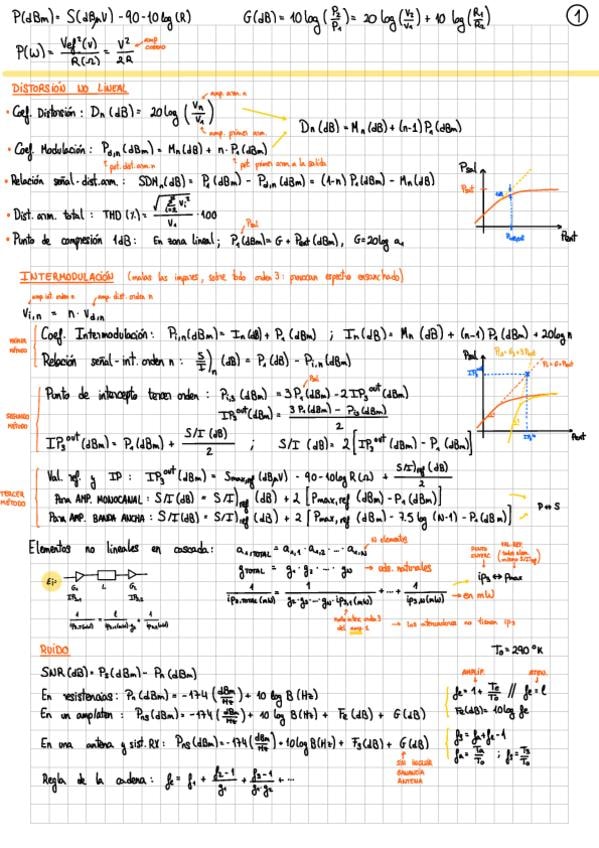 P(dBm) = S(dBμV) - 90 - 10 log (R)
G(dB) = 10 log (P₂/P₁) = 20 log (V₂/V₁) + 10 log (R₁/R₂)
①
P(W) = Vef²(V)/R(Ω) = V²/2R
DISTORSIÓN NO LINEAL
• Coef. Distorsión: Dn (dB) = 20 log (Vn/V₁)
amp. arm. n
amp. primer arm.
Dn (dB) = Mn (dB) + (n-1) P₁ (dBm)
• Coef. Modulación: Pd,n (dBm) = Mn (dB) + n · P₁ (dBm)
pot. dist. arm. n
pot primer arm. a la salida
• Relación señal-dist. arm.: SDHn (dB) = P₁ (dBm) - Pd,n (dBm) = (1-n) P₁ (dBm) - Mn (dB)
• Dist. arm. total: THD (%) = · 100
• Punto de compresión 1dB: En zona lineal; P₁ (dBm) = G + Pent (dBm), G = 20 log a₁
Psal
Pent
INTERMODULACIÓN (malas las impares, sobre todo orden 3: provocan espectro ensanchado)
amp. int. orden n
amp. dist. orden n
Vi,n = n · Vd,n
PRIMER MÉTODO
Coef. Intermodulación: Pi,n (dBm) = In (dB) + P₁ (dBm) ; In (dB) = Mn (dB) + (n-1) P₁ (dBm) + 20 log n
Relación señal-int. orden n: S/I)n (dB) = P₁ (dBm) - Pi,n (dBm)
SEGUNDO MÉTODO
Punto de intercepto tercer orden: Pi,3 (dBm) = 3 P₁ (dBm) - 2 IP₃ᵒᵘᵗ (dBm)
IP₃ᵒᵘᵗ (dBm) = (3 P₁ (dBm) - Pi3 (dBm))/2
IP₃ᵒᵘᵗ (dBm) = P₁ (dBm) + S/I (dB)/2 ; S/I (dB) = 2 [IP₃ᵒᵘᵗ (dBm) - P₁ (dBm)]
Psal
Pent
TERCER MÉTODO
Val. ref. y IP: IP₃ᵒᵘᵗ (dBm) = Smax,ref (dBμV) - 90 - 10 log R(Ω) + S/I)ref (dB)/2
Para AMP. MONOCANAL: S/I (dB) = S/I)ref (dB) + 2 [Pmax,ref (dBm) - P₁ (dBm)]
Para AMP. BANDA ANCHA: S/I (dB) = S/I)ref (dB) + 2 [Pmax,ref (dBm) - 7.5 log (N-1) - P₁ (dBm)]
P ↔ S
Elementos no lineales en cascada: a₁,TOTAL = a₁,₁ · a₁,₂ · ... · a₁,N
N elementos
gTOTAL = g₁ · g₂ · ... · gN → uds. naturales
ip₃ ↔ pmax
1/ip₃,TOTAL (mW) = 1/(g₂ · g₃ ··· gN · ip₃,₁ (mW)) + ... + 1/ip₃,N (mW) → en mW
Ej:
G₂ L G₁
→ los atenuadores no tienen ip₃
RUIDO
T₀ = 290 °K
SNR (dB) = Ps (dBm) - Pn (dBm)
En resistencias: Pn (dBm) = -174 (dBm/Hz) + 10 log B (Hz)
En un amplaten: Pns (dBm) = -174 (dBm/Hz) + 10 log B (Hz) + Fe (dB) + G (dB)
En una antena y sist. RX: Pns (dBm) = -174 (dBm/Hz) + 10 log B (Hz) + Fs (dB) + G (dB)
SIN INCLUIR GANANCIA ANTENA
AMPLIF.
ATENU.
fe = 1 + Te/T₀ // fe = l
Fe (dB) = 10 log fe
fs = fa + fe - 1
fa = Ta/T₀ ; fs = Ts/T₀
Regla de la cadena: fe = f₁ + (f₂-1)/g₁ + (f₃-1)/(g₁·g₂) + ...